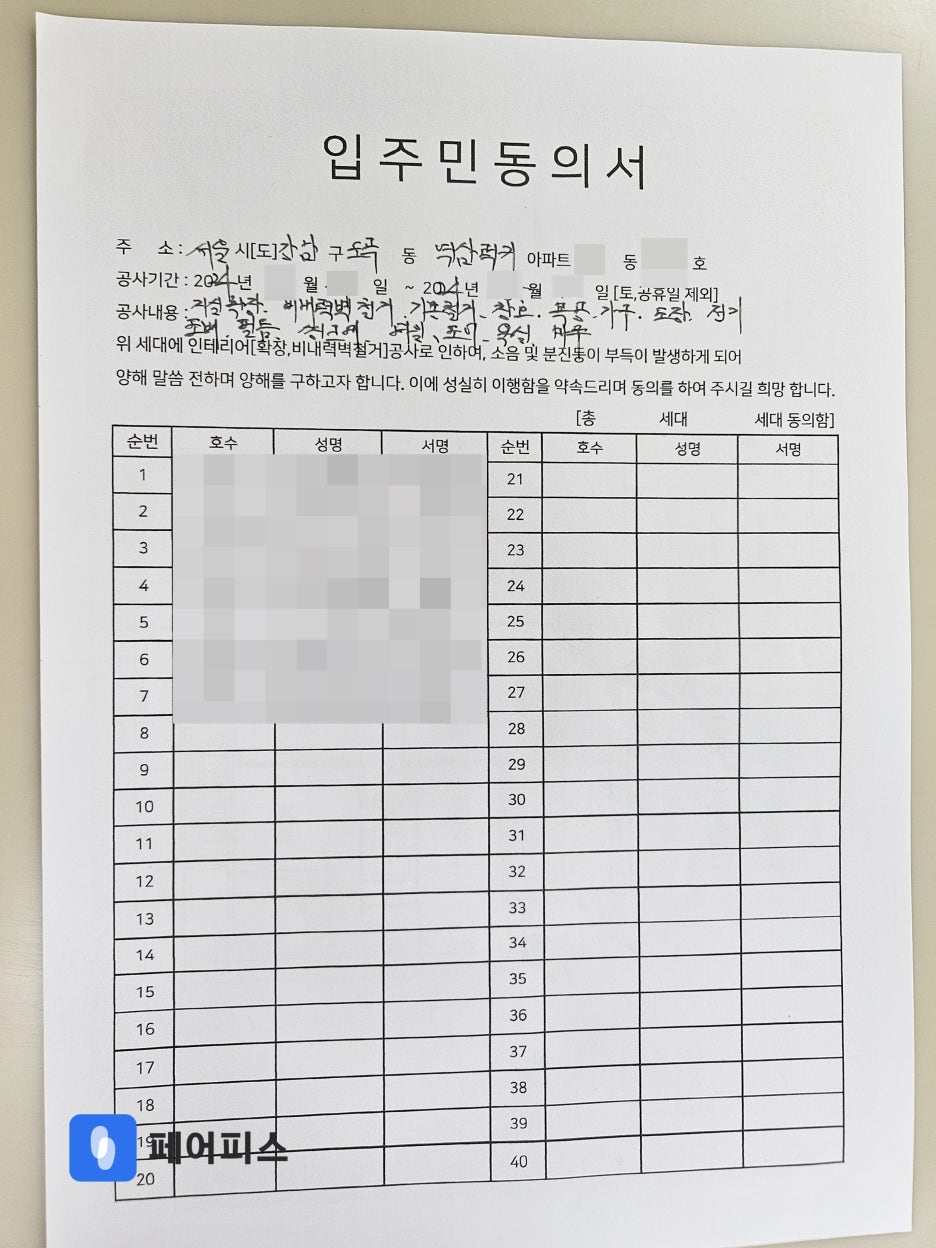 입주민동의서
주 소 : 서울 시[도] 강남 구 도곡 동 역삼럭키 아파트 동 호
공사기간 : 2024년 월 일 ~ 2024년 월 일 [토,공휴일 제외]
공사내용 : 거실확장. 비내력벽 철거. 기존철거. 창호. 목공. 가구. 도장. 전기
도배. 필름. 타일. 욕실.
위 세대에 인테리어[확장,비내력벽철거]공사로 인하여, 소음 및 분진등이 부득이 발생하게 되어
양해 말씀 전하며 양해를 구하고자 합니다. 이에 성실히 이행함을 약속드리며 동의를 하여 주시길 희망 합니다.
[총 세대 세대 동의함]
순번 호수 성명 서명 순번 호수 성명 서명
1 21
2 22
3 23
4 24
5 25
6 26
7 27
8 28
9 29
10 30
11 31
12 32
13 33
14 34
15 35
16 36
17 37
18 38
19 39
20 40
페어피스